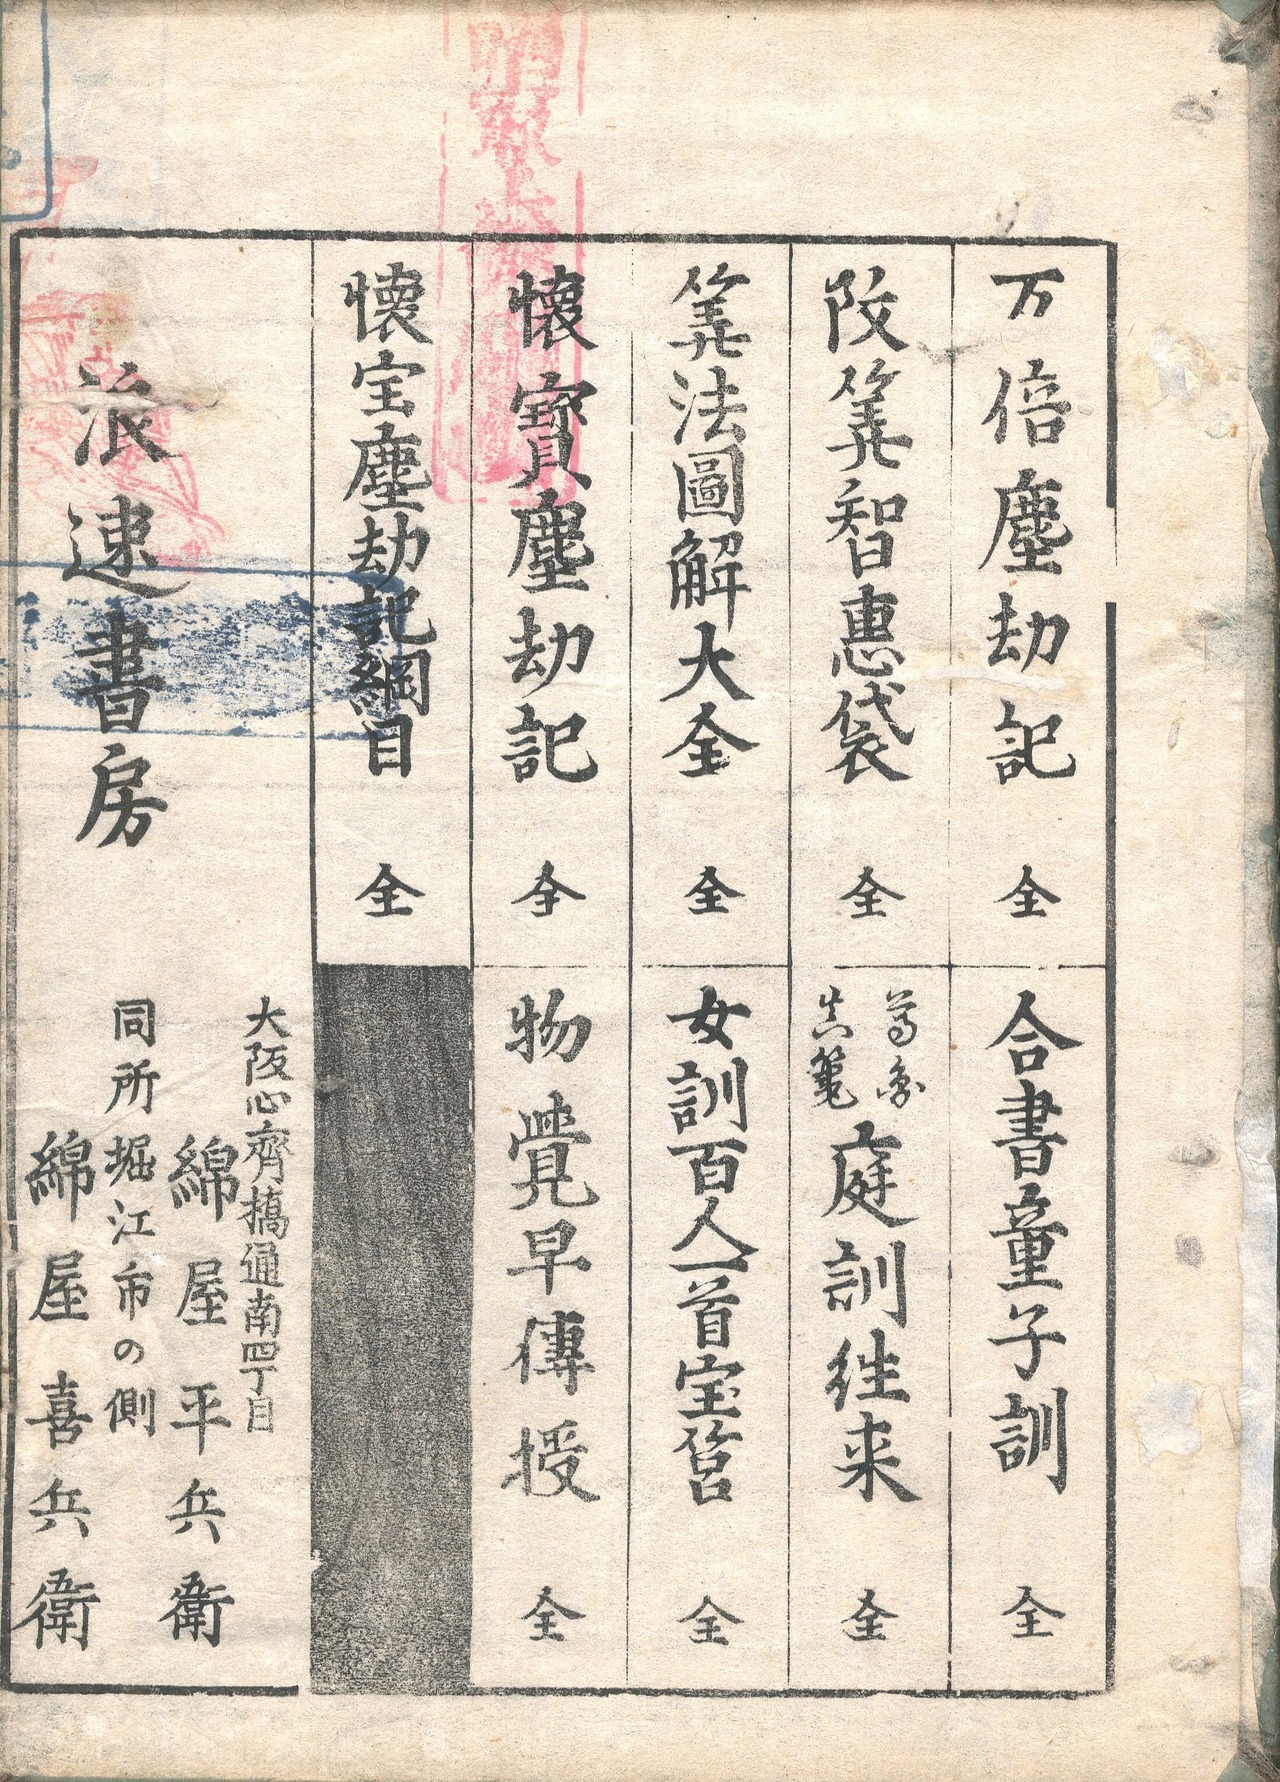 万倍塵劫記 全
改筭智惠袋 全
筭法圖解大全 全
懐寳塵劫記 全
懐宝塵劫記綱目 全
合書童子訓 全
庭訓徃来 全
女訓百人一首宝筥 全
物覺早傳授 全
浪速書房
大阪心齊橋通南四丁目
綿屋平兵衛
同所堀江市の側
綿屋喜兵衛